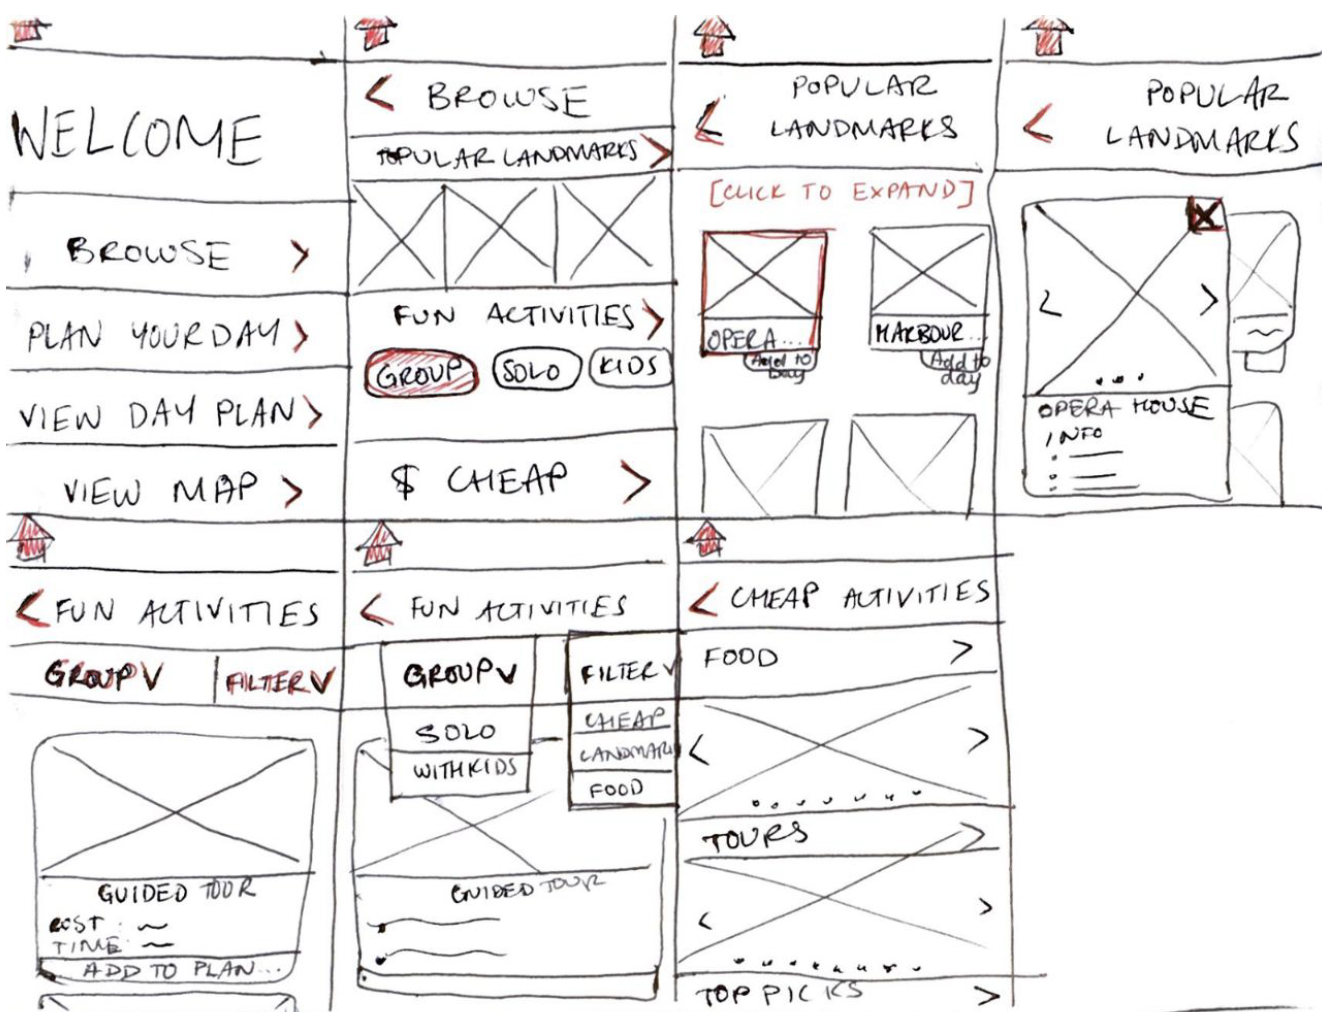 WELCOME
BROWSE >
PLAN YOUR DAY >
VIEW DAY PLAN >
VIEW MAP >
< BROWSE
POPULAR LANDMARKS >
FUN ACTIVITIES >
GROUP SOLO KIDS
$ CHEAP >
< POPULAR
LANDMARKS
[CLICK TO EXPAND]
OPERA...
Add to
Day
HARBOUR...
Add to
day
< POPULAR
LANDMARKS
X
< >
OPERA HOUSE
INFO
< FUN ACTIVITIES
GROUP V FILTER V
GUIDED TOUR
COST :
TIME :
ADD TO PLAN...
< FUN ACTIVITIES
GROUP V
SOLO
WITH KIDS
FILTER V
CHEAP
LANDMARK
FOOD
GUIDED TOUR
< CHEAP ACTIVITIES
FOOD >
< >
TOURS >
< >
TOP PICKS >